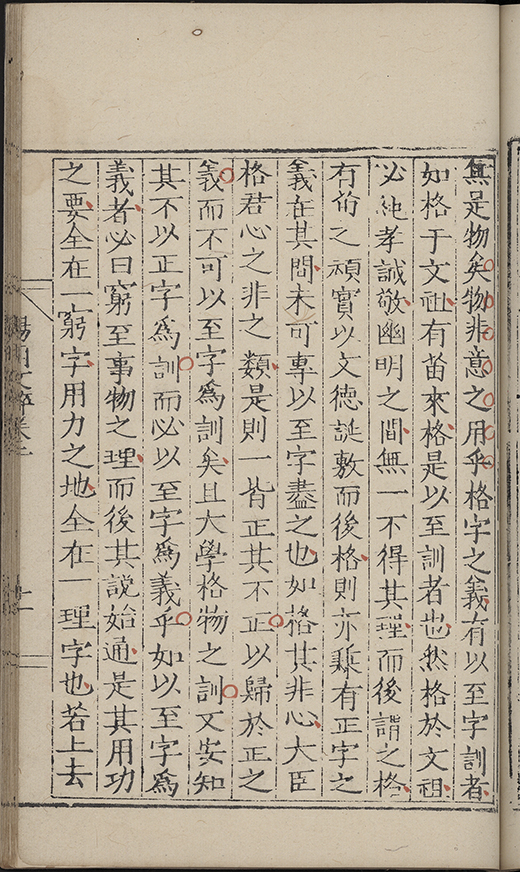 無是物矣物非意之用乎格字之義有以至字訓者
如格于文祖有苗來格是以至訓者也然格於文祖
必純孝誠敬幽明之間無一不得其理而後謂之格
有苗之頑實以文德誕敷而後格則亦兼有正字之
義在其間未可專以至字盡之也如格其非心大臣
格君心之非之類是則一皆正其不正以歸於正之
義而不可以至字爲訓矣且大學格物之訓又安知
其不以正字爲訓而必以至字爲義乎如以至字爲
義者必曰窮至事物之理而後其說始通是其用功
之要全在一窮字用力之地全在一理字也若上去
陽明文粹卷